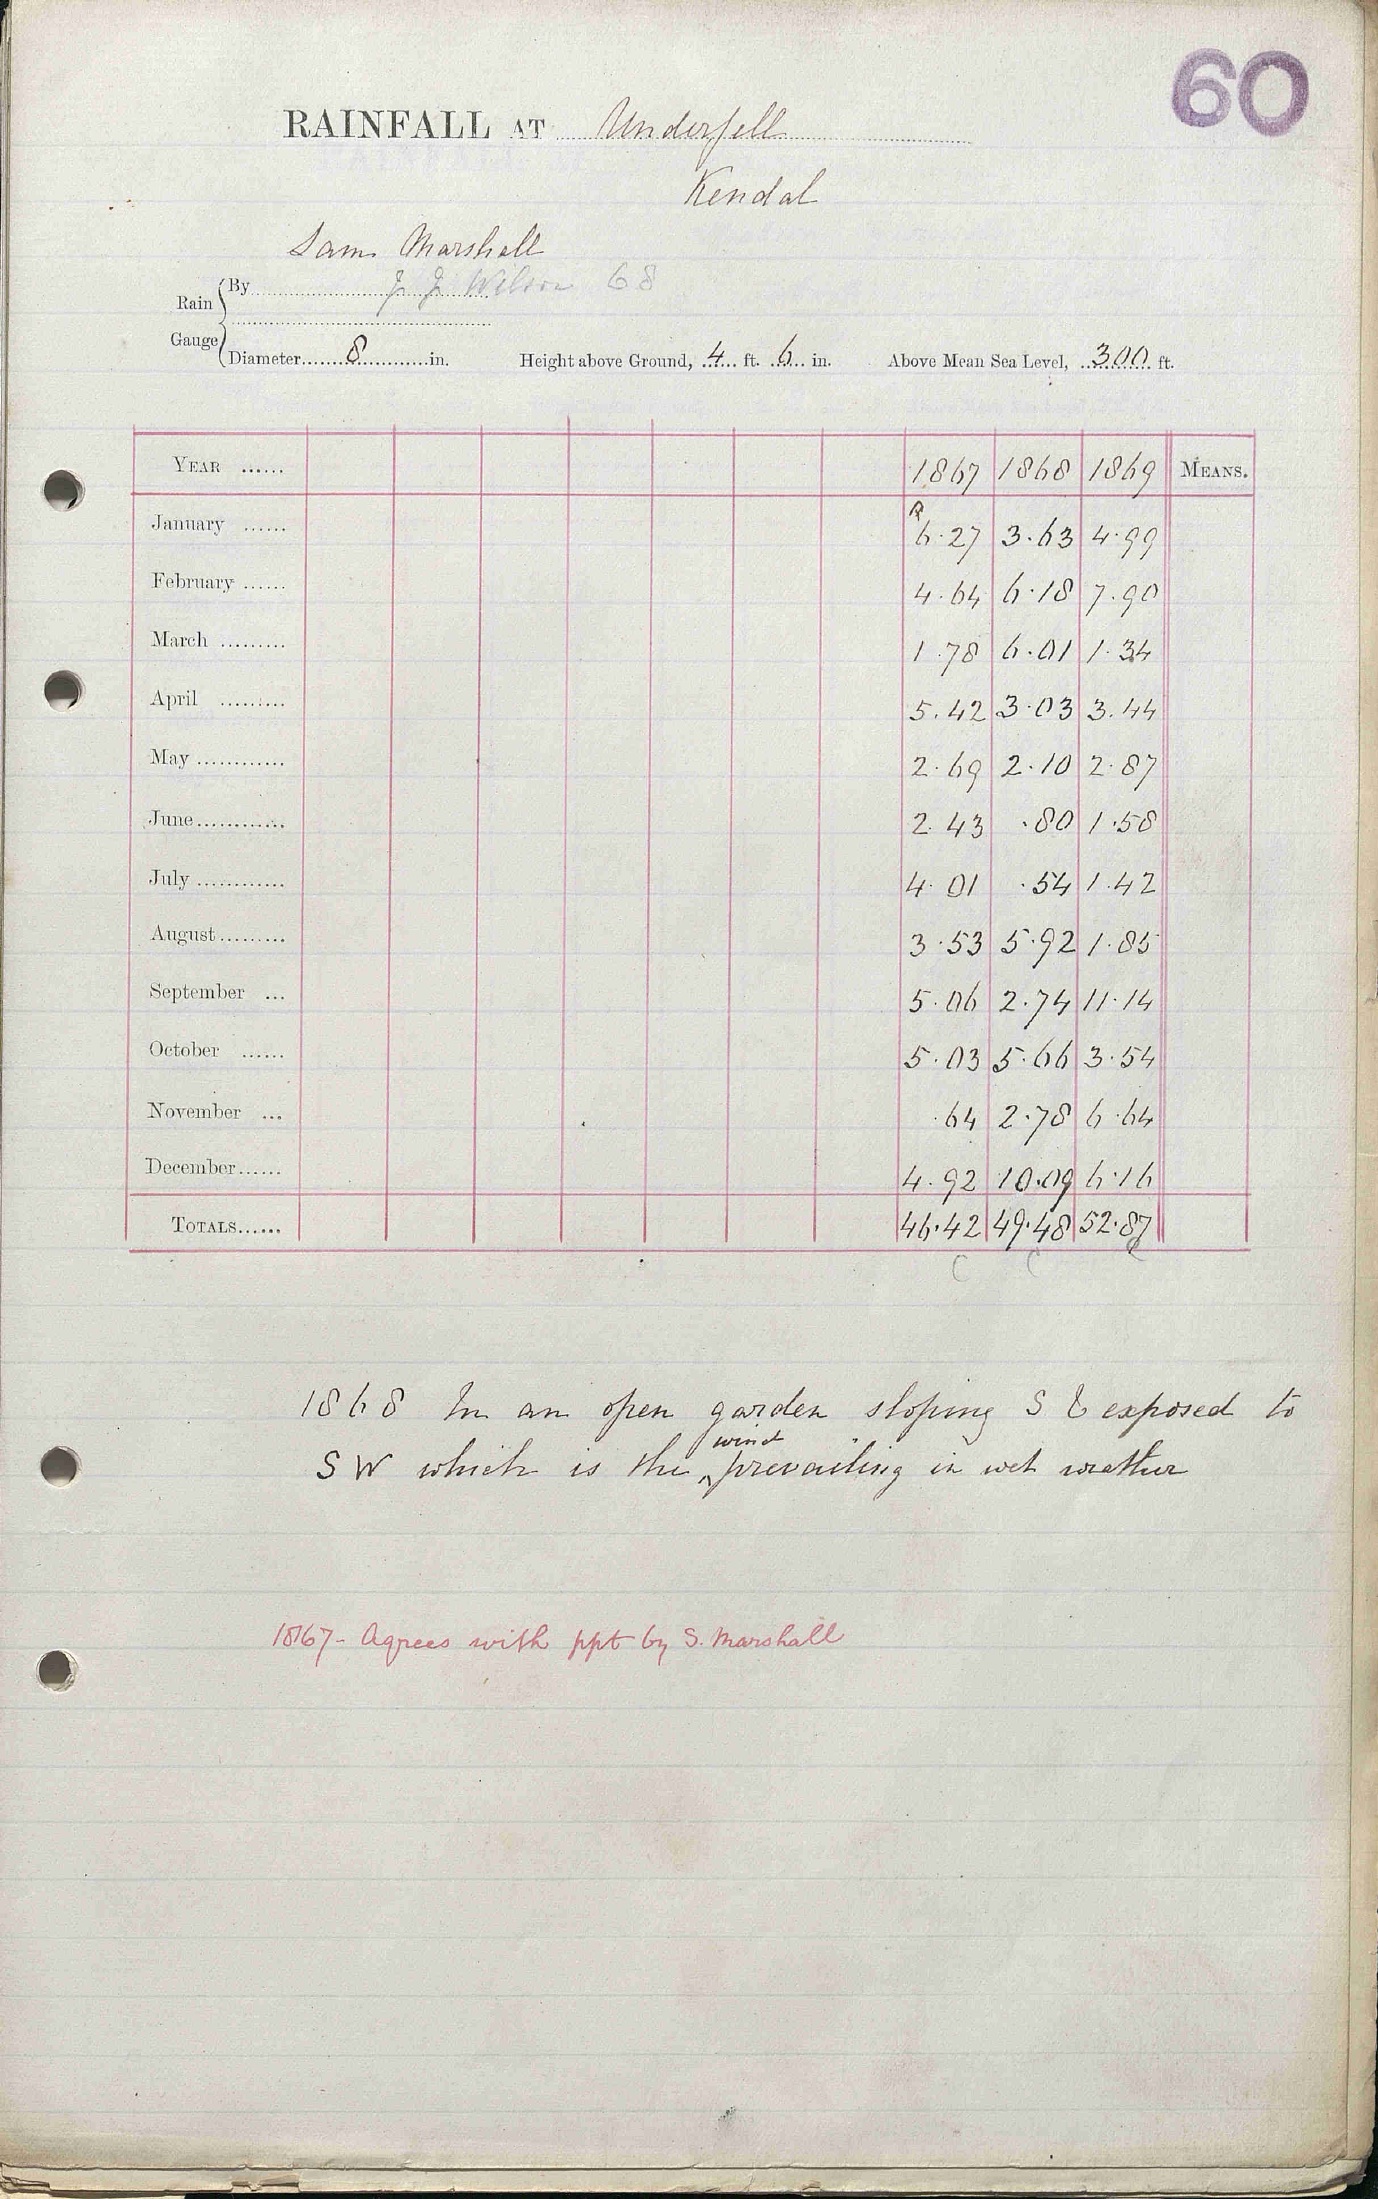 60
RAINFALL AT Underfell
Kendal
Sam Marshall
Rain Gauge
By J J Wilson 68
Diameter 8 in. Height above Ground, 4 ft. 6 in. Above Mean Sea Level, 300 ft.
YEAR ...... 1867 1868 1869 MEANS.
January ...... 6.27 3.63 4.99
February ...... 4.64 6.18 7.90
March ......... 1.78 6.01 1.34
April ......... 5.42 3.03 3.44
May ............ 2.69 2.10 2.87
June ............ 2.43 .80 1.58
July ............ 4.01 .54 1.42
August ......... 3.53 5.92 1.85
September ... 5.06 2.74 11.14
October ...... 5.03 5.66 3.54
November ... .64 2.78 6.64
December ...... 4.92 10.09 6.16
TOTALS ...... 46.42 49.48 52.87
C C C
1868 In an open garden sloping S E exposed to
SW which is the wind prevailing in wet weather
1867 - Agrees with ppt by S. Marshall